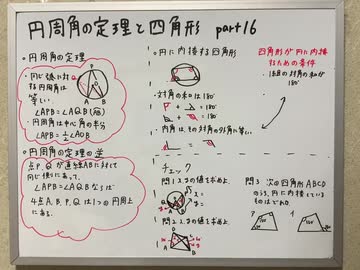 円周角の定理と四角形 part16
・円周角の定理
・同じ弧に対
する円周角は
等しい
∠APB=∠AQB
・円周角は中心角の半分
∠APB=½∠AOB
・円周角の定理の逆
点P、Qが直線ABに対して
同じ側にあって、
∠APB=∠AQBならば
4点A、B、P、Qは1つの円周上
にある。
・円に内接する四角形
・対角の和は180°
+ = 180°
+ = 180°
・内角はその対角の外角に等しい
チェック
問1
問2
四角形が円に内接
するための条件
・1組の対角の和が
180°
問3 次の四角形ABCD
のうち、円に内接している
ものはどれか